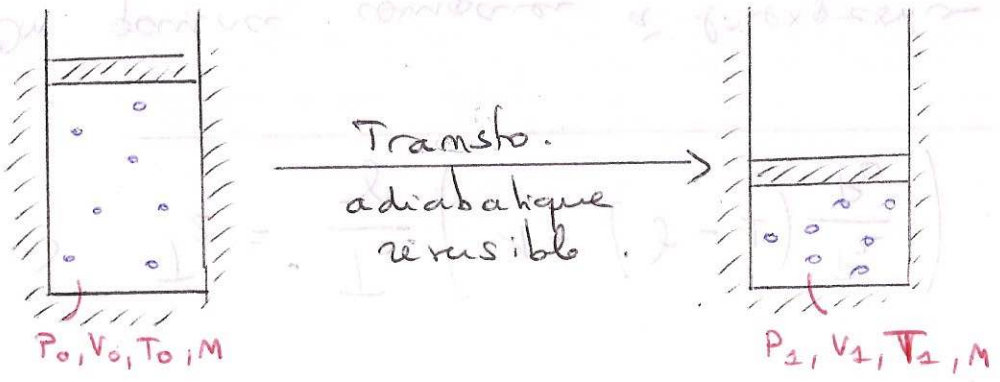 Transfo.
adiabatique
réversible.
P0, V0, T0, M
P1, V1, T1, M